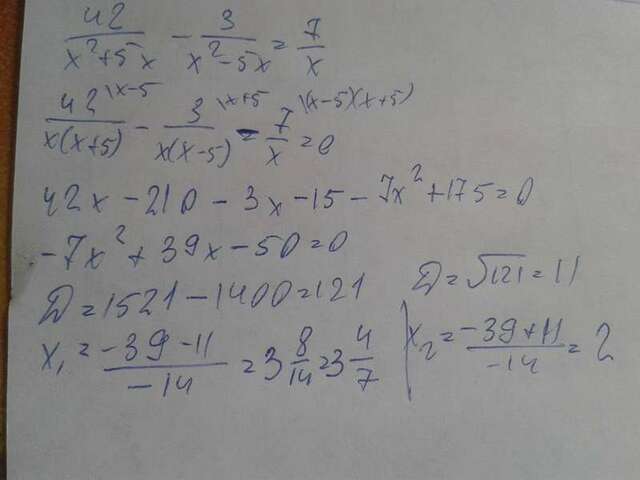 42/(x²+5x) - 3/(x²-5x) = 7/x
42\x-5/(x(x+5)) - 3\x+5/(x(x-5)) - 7\(x-5)(x+5)/x = 0
42x - 210 - 3x - 15 - 7x² + 175 = 0
-7x² + 39x - 50 = 0
D = 1521 - 1400 = 121 D = √121 = 11
x₁ = (-39-11)/(-14) = 3 8/14 = 3 4/7 | x₂ = (-39+11)/(-14) = 2